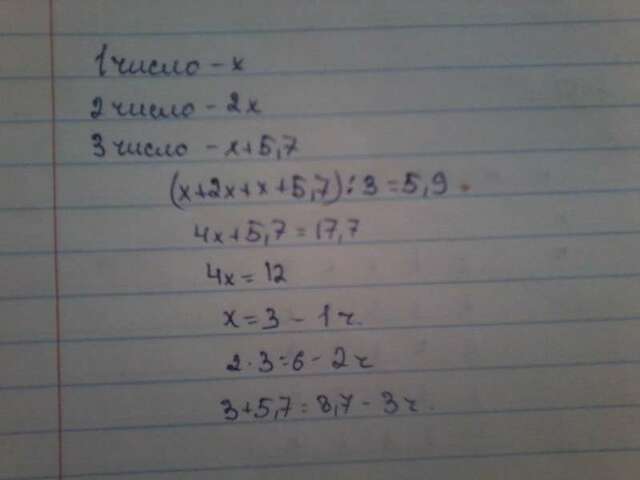 1 число - x
2 число - 2x
3 число - x+5,7
(x+2x+x+5,7):3=5,9
4x+5,7=17,7
4x=12
x=3 - 1ч.
2·3=6 - 2ч
3+5,7=8,7 - 3ч.